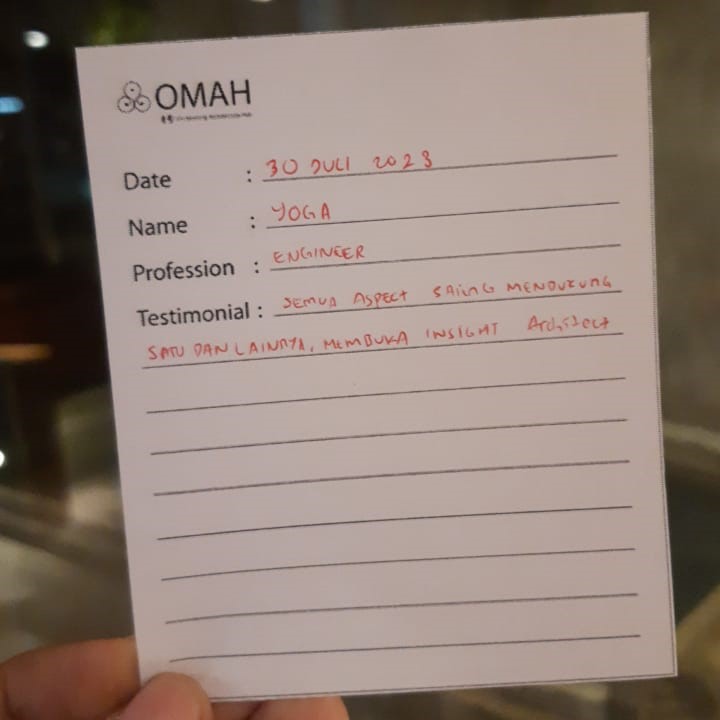 OMAH
Date : 30 JULI 2023
Name : YOGA
Profession : ENGINEER
Testimonial : SEMUA ASPECT SAiNG MENDUKUNG
SATU DAN LAINNYA, MEMBUKA INSIGHT Architect